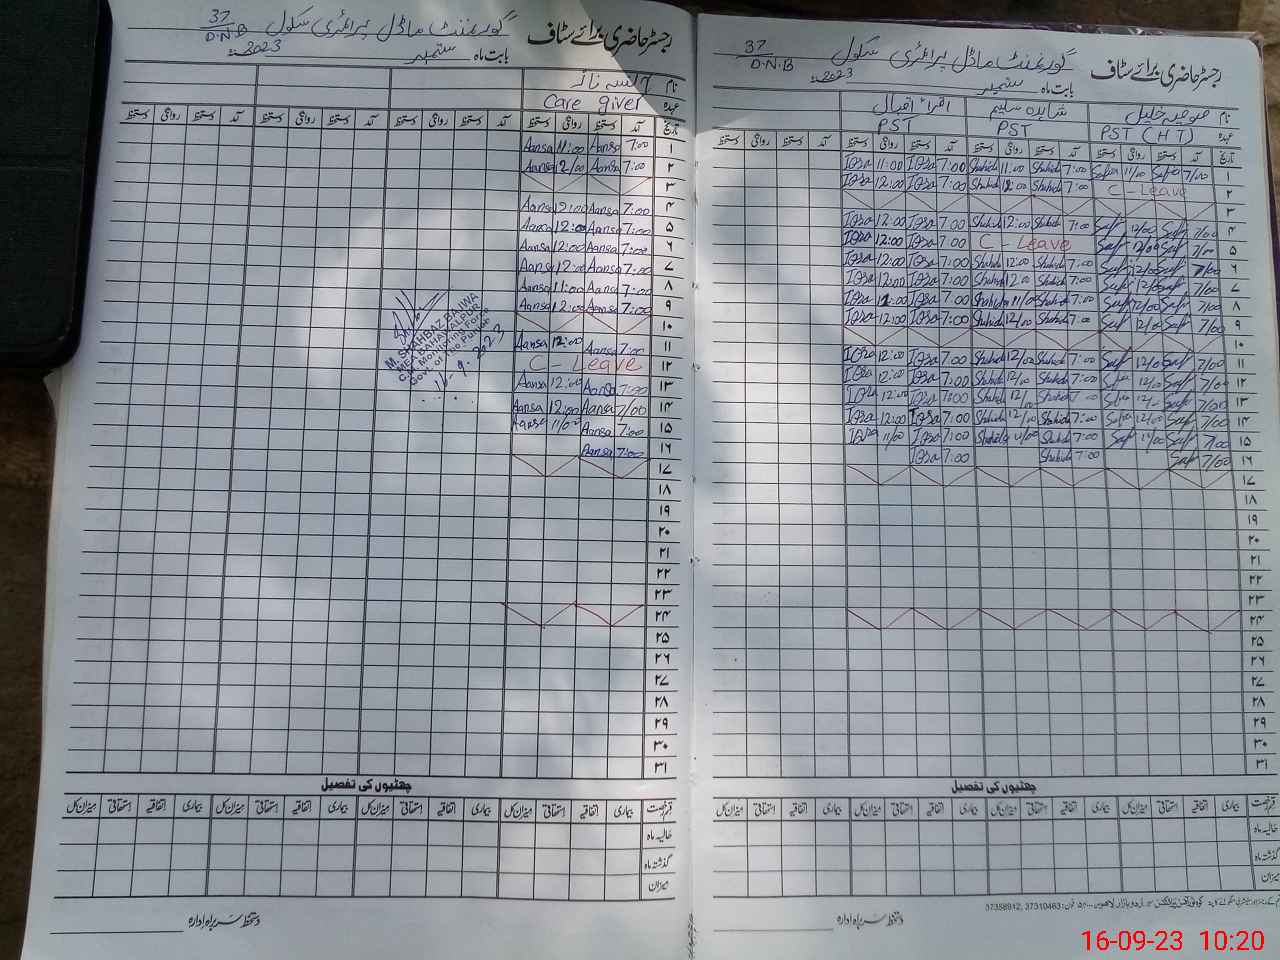 رجسٹر حاضری برائے سٹاف گورنمنٹ ماڈل پرائمری سکول 37/D.N.B
بابت ماہ ستمبر 2023ء
نام صوفیہ خلیل شاہدہ سلیم اقراء اقبال
عہدہ PST (HT) PST PST
تاریخ آمد دستخط روانگی دستخط آمد دستخط روانگی دستخط آمد دستخط روانگی دستخط آمد دستخط روانگی دستخط
۱ 7/00 Safia 11/00 Safia 7:00 Shahida 11:00 Shahida 7:00 Iqra 11:00 Iqra
۲ C - Leave 7:00 Shahida 12:00 Shahida 7:00 Iqra 12:00 Iqra
۳
۴ 7/00 Saf 12/00 Saf 7:00 Shahida 12:00 Shahida 7:00 Iqra 12:00 Iqra
۵ 7/00 Saf 12/00 Saf C - Leave 7:00 Iqra 12:00 Iqra
۶ 7/00 Saf 12/00 Saf 7:00 Shahida 12:00 Shahida 7:00 Iqra 12:00 Iqra
۷ 7/00 Saf 12/00 Saf 7:00 Shahida 12:00 Shahida 7:00 Iqra 12:00 Iqra
۸ 7/00 Saf 12/00 Saf 7:00 Shahida 11/00 Shahida 7:00 Iqra 12:00 Iqra
۹ 7/00 Saf 12/00 Saf 7:00 Shahida 12/00 Shahida 7:00 Iqra 12:00 Iqra
۱۰
۱۱ 7/00 Saf 12/00 Saf 7:00 Shahida 12/00 Shahida 7:00 Iqra 12:00 Iqra
۱۲ 7/00 Saf 12/00 7:00 Shahida 12/00 Shahida 7:00 Iqra 12:00 Iqra
۱۳ 7/00 Saf 7:00 Shahida Shahida 7:00 Iqra 12:00 Iqra
۱۴ 7/00 Saf 12/00 7:00 Shahida 12/00 Shahida 7:00 Iqra 12:00 Iqra
۱۵ 7/00 Saf 11/00 Saf 7:00 Shahida 11/00 Shahida 7:00 Iqra 11/00 Iqra
۱۶ 7/00 Saf 7:00 Shahida 7:00 Iqra
۱۷
۱۸
۱۹
۲۰
۲۱
۲۲
۲۳
۲۴
۲۵
۲۶
۲۷
۲۸
۲۹
۳۰
۳۱
چھٹیوں کی تفصیل
قسم رخصت بیماری اتفاقیہ استحقاقی میزان کل بیماری اتفاقیہ استحقاقی میزان کل بیماری اتفاقیہ استحقاقی میزان کل بیماری اتفاقیہ استحقاقی میزان کل
حالیہ ماہ
گذشتہ ماہ
میزان
37358912, 37310463
دستخط سربراہ ادارہ
رجسٹر حاضری برائے سٹاف گورنمنٹ ماڈل پرائمری سکول 37/D.N.B
بابت ماہ ستمبر 2023ء
نام
عہدہ Care giver
تاریخ آمد دستخط روانگی دستخط آمد دستخط روانگی دستخط آمد دستخط روانگی دستخط آمد دستخط روانگی دستخط
۱ 7:00 Aansa 11:00 Aansa
۲ 7:00 Aansa 12/00 Aansa
۳
۴ 7:00 Aansa 12:00 Aansa
۵ 7:00 Aansa 12:00 Aansa
۶ 7:00 Aansa 12:00 Aansa
۷ 7:00 Aansa 12:00 Aansa
۸ 7:00 Aansa 11:00 Aansa
۹ 7:00 Aansa 12:00 Aansa
۱۰
۱۱ 7:00 Aansa 12:00 Aansa
۱۲ C - Leave
۱۳ 7:00 Aansa 12:00 Aansa
۱۴ 7/00 Aansa 12:00 Aansa
۱۵ 7:00 Aansa 11/00 Aansa
۱۶ 7:00 Aansa
۱۷
۱۸
۱۹
۲۰
۲۱
۲۲
۲۳
۲۴
۲۵
۲۶
۲۷
۲۸
۲۹
۳۰
۳۱
M. SHAHBAZ BAJWA
MEA BAHAWALPUR
C.M. Monitoring Force
Govt. of the Punjab
چھٹیوں کی تفصیل
قسم رخصت بیماری اتفاقیہ استحقاقی میزان کل بیماری اتفاقیہ استحقاقی میزان کل بیماری اتفاقیہ استحقاقی میزان کل بیماری اتفاقیہ استحقاقی میزان کل
حالیہ ماہ
گذشتہ ماہ
میزان
دستخط سربراہ ادارہ
16-09-23 10:20